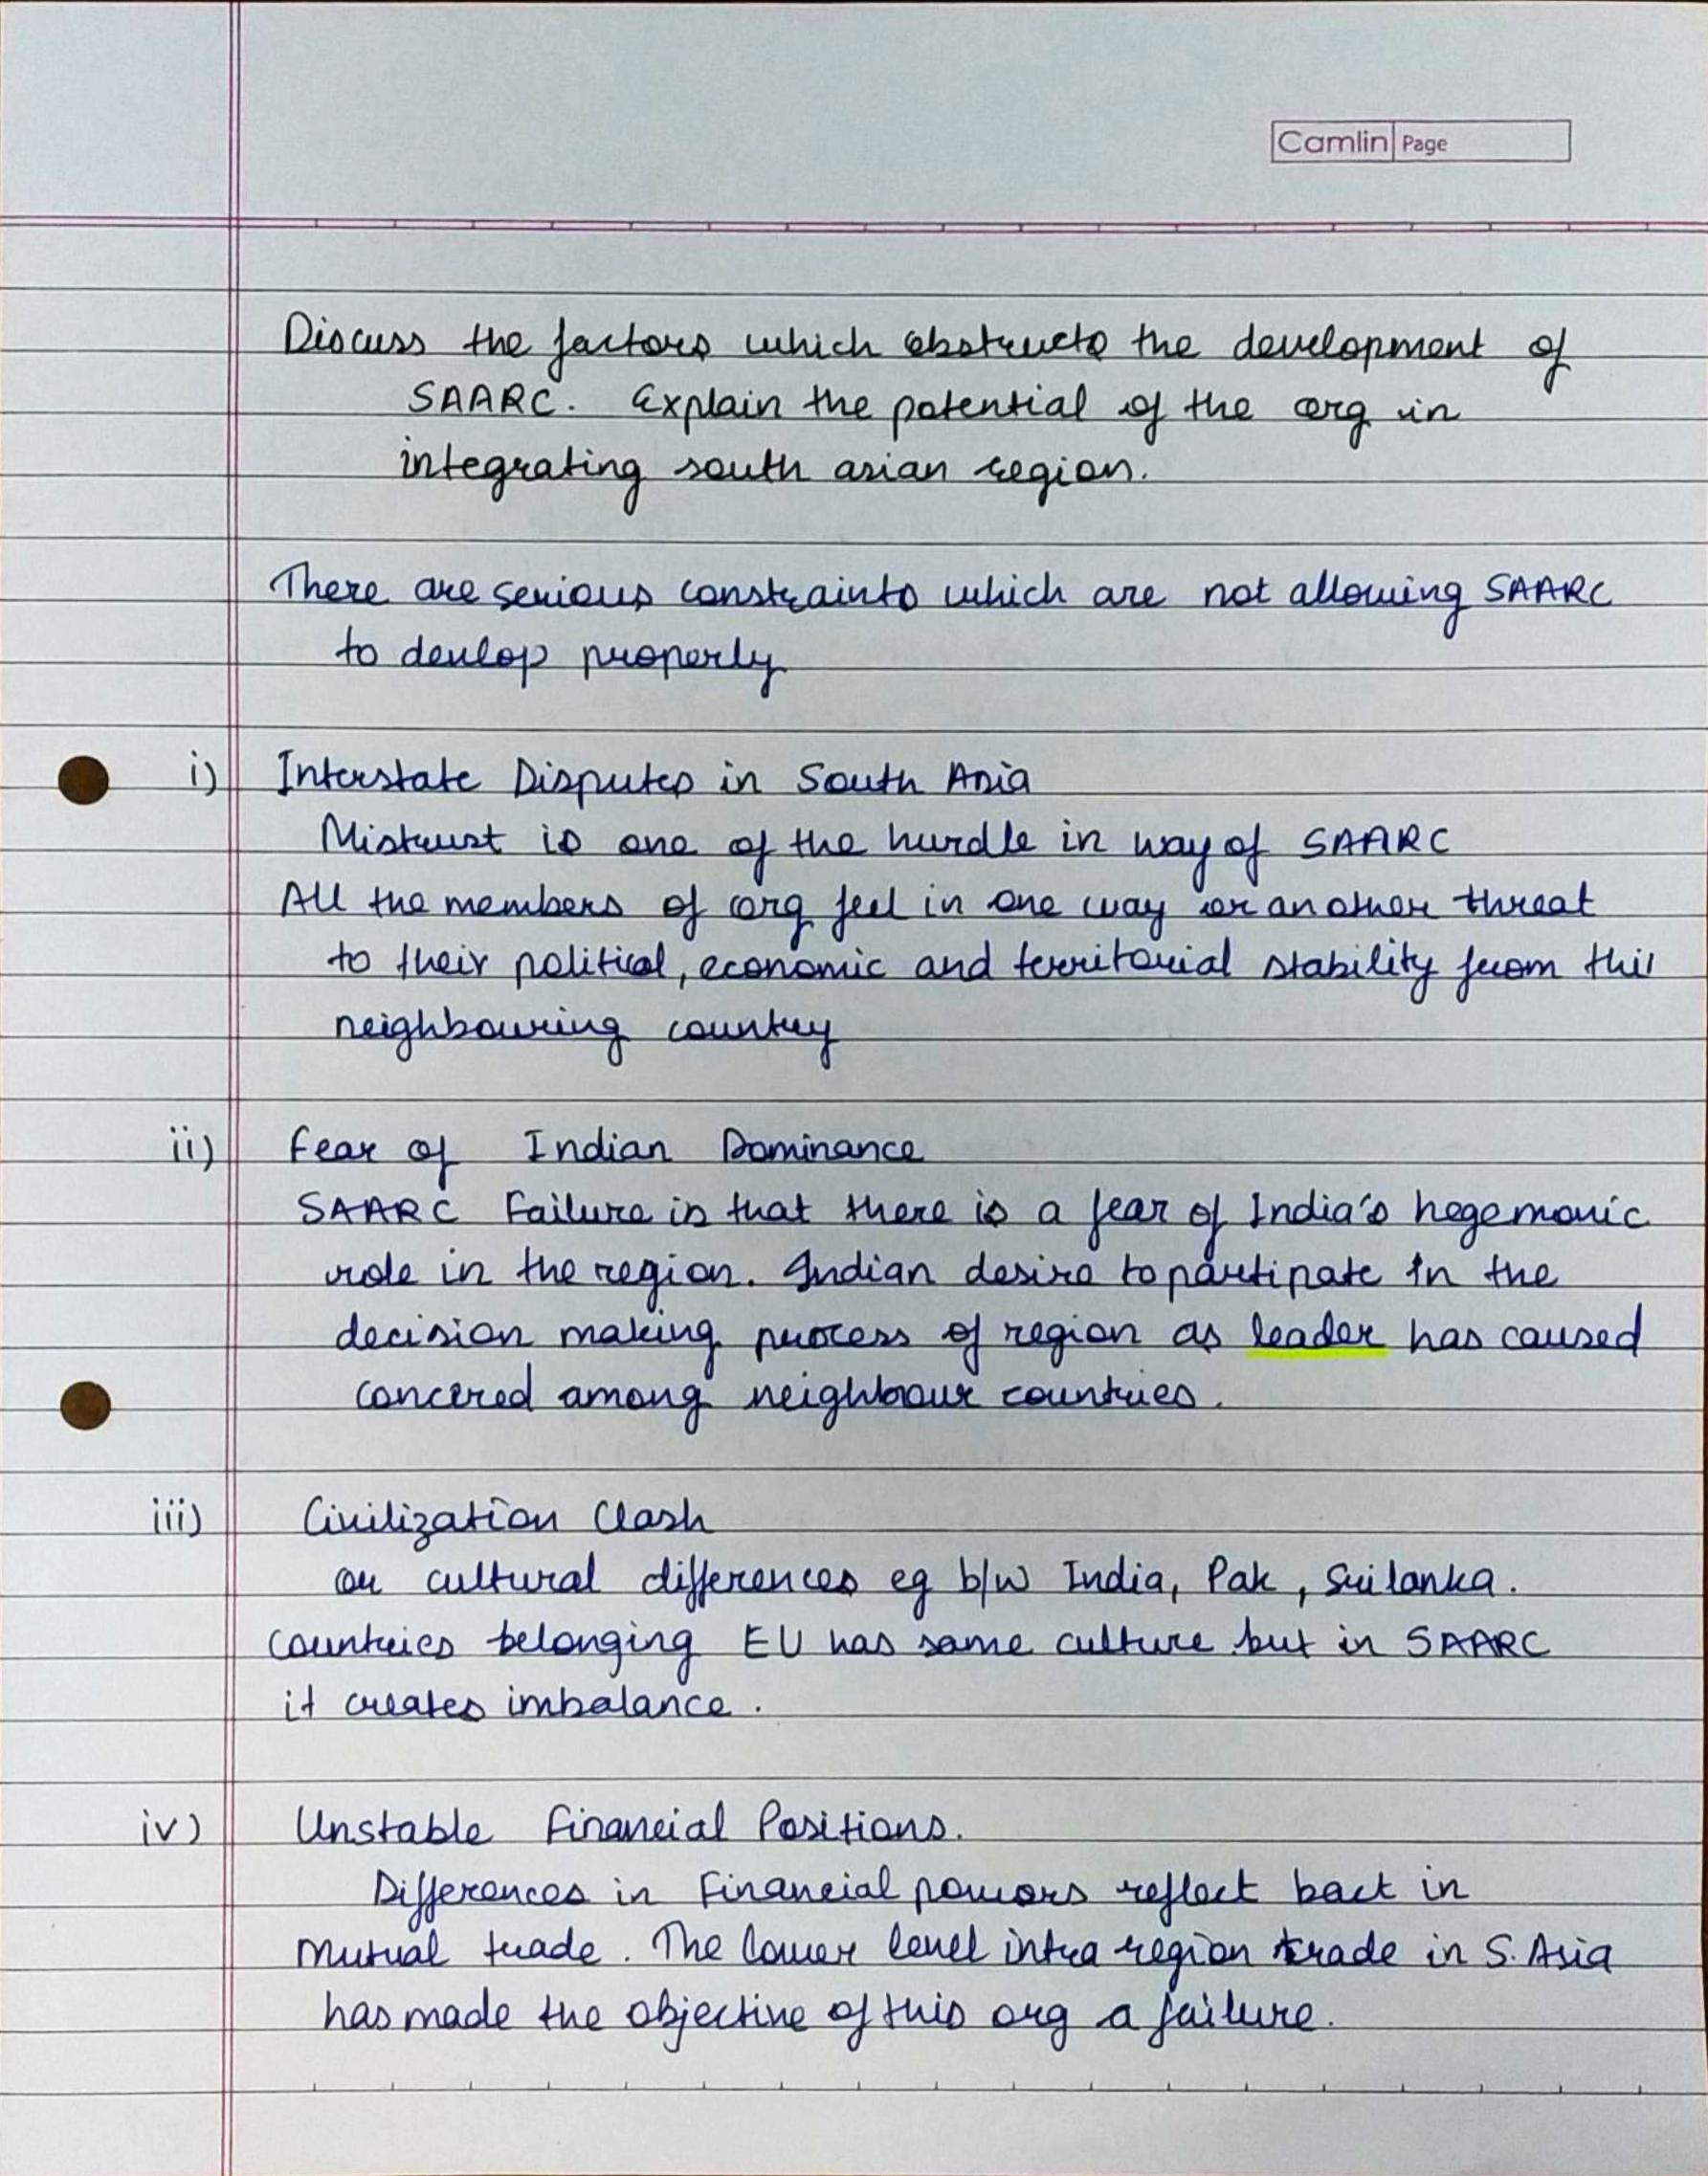 Camlin Page
Discuss the factors which obstructs the development of
SAARC. Explain the potential of the org in
integrating south asian region.
There are serious constraints which are not allowing SAARC
to devlop properly
i) Interstate Disputes in South Asia
Mistrust is one of the hurdle in way of SAARC
All the members of org feel in one way or another threat
to their political, economic and territorial stability from thir
neighbouring country
ii) Fear of Indian Dominance
SAARC Failure is that there is a fear of India's hegemonic
role in the region. Indian desire to partipate in the
decision making process of region as leader has caused
concered among neighbour countries.
iii) Civilization Clash
or cultural differences eg b/w India, Pak, Srilanka.
countries belonging EU has same culture but in SAARC
it creates imbalance.
iv) Unstable Financial Positions.
Differences in Financial powers reflect back in
mutual trade. The lower level intra region trade in S. Asia
has made the objective of this org a failure.